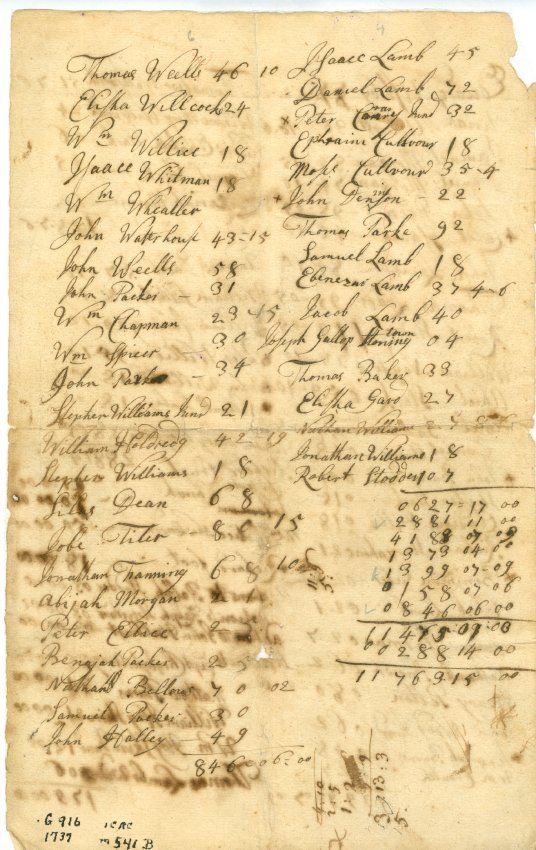 Thomas Weells 46 10
Elisha Willcock 24
Wm Willice 18
Isaac Whitman 18
Wm Wheatler
John Waterhouse 43-15
John Weells 58
John Packer - 31
Wm Chapman 23-15
Wm Spicer - 30
John Parke - 34
Stephen Williams Jund 21
William Holdredg 42 19
Stephen Williams 18
Silas Dean 68
Jobe Tiler - 85 15
Jonathan Fanning 68 10
Abijah Morgan 21
Peter Ellice 2
Benajah Packer 25
Nathan Bellows 70 02
Samuel Packer 30
John Halley - 49
846=06=00
Isaac Lamb 45
Daniel Lamb 72
x Peter Jund 32
Ephraim Cullvour 18
Moses Cullvour 35-4
John Denison - 22
Thomas Parke 92
Samuel Lamb 18
Ebenezar Lamb 37 4-6
Jacob Lamb 40
Joseph Gallop Stonington 04
Thomas Baker 33
Elisha Gard 27
Nathan Williams
Jonathan Williams 18
Robert Stodder 107
0627-17 00
2881 11 00
4188 07 09
1373 04 00
1399 07-09
0158 07-06
0846 06 00
11475-09-00
00288 14 00
11763-15 00
G 916
1739
541 B